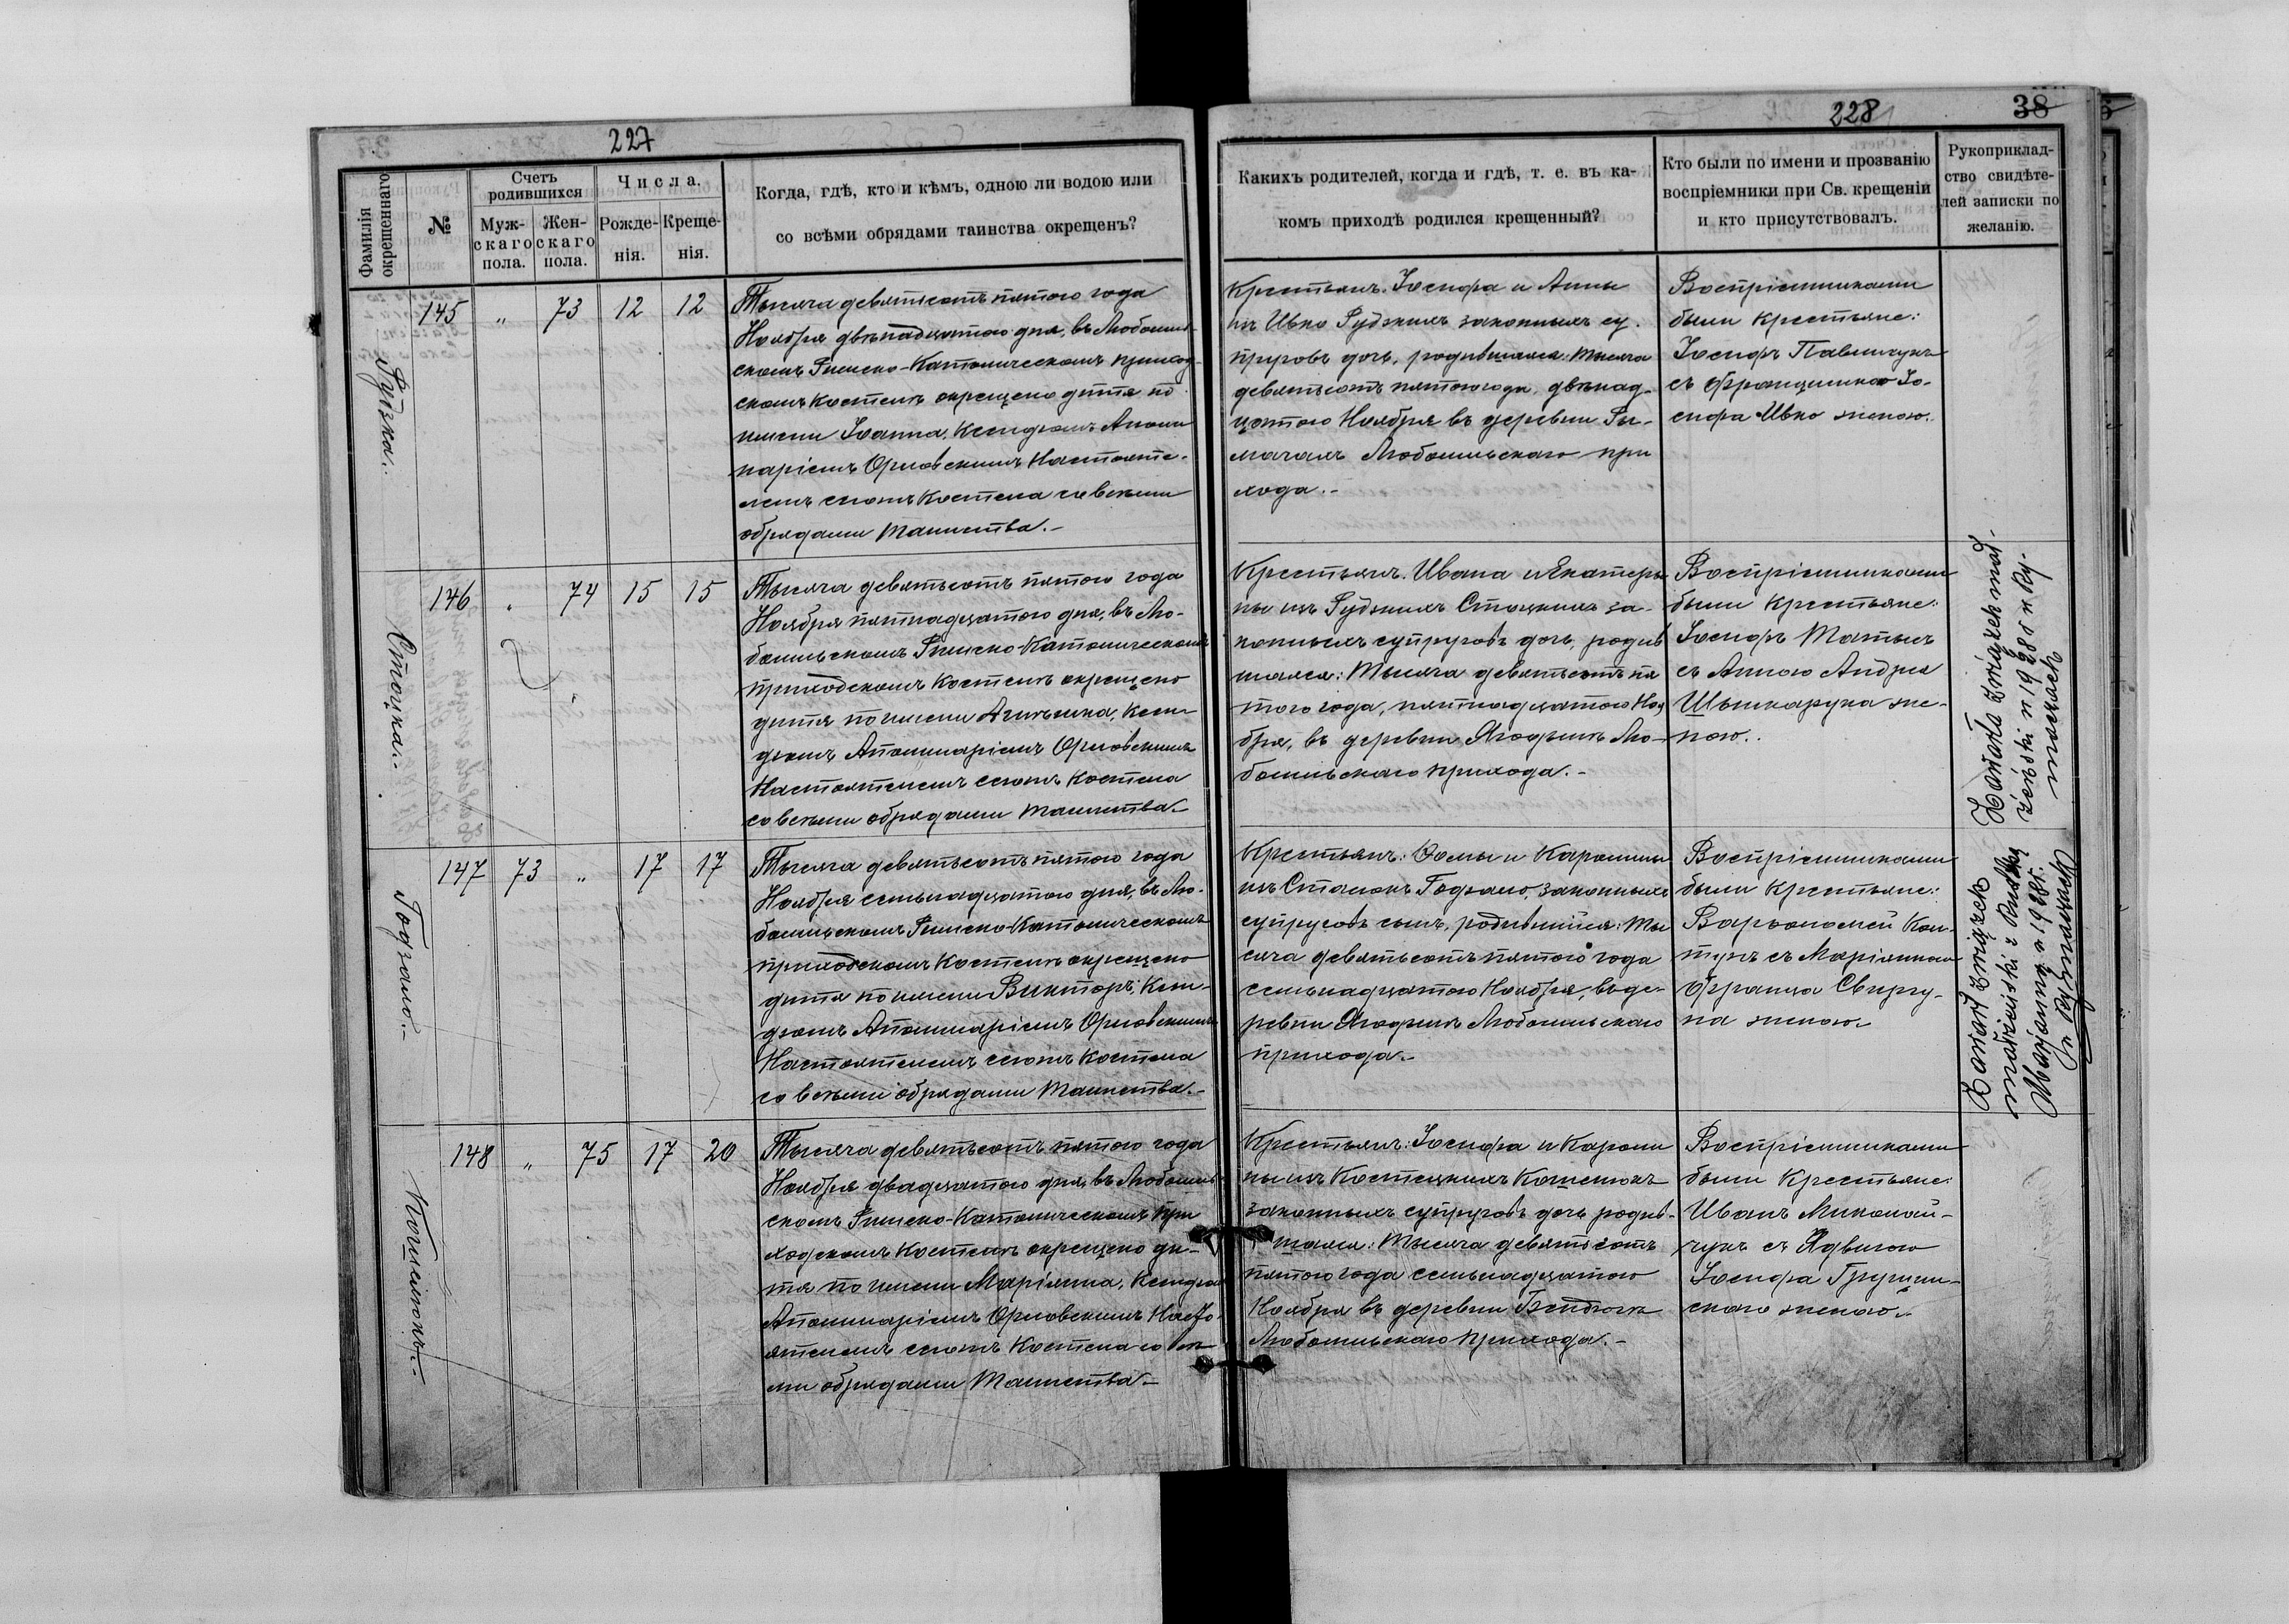 227
Фамилія окрещеннаго
№
Счетъ родившихся
Муж-
скаго
пола.
Жен-
скаго
пола.
Числа.
Рожде-
нія.
Креще-
нія.
Когда, гдѣ, кто и кѣмъ, одною ли водою или
со всѣми обрядами таинства окрещенъ?
Рудзка.
145 „ 73 12 12
Тысяча девятьсотъ пятого года
Ноября двѣнадцатого дня, въ Любомль-
скомъ Римско-Католическомъ приход-
скомъ Костелѣ окрещено дитя по
имени Іоанна, Ксендзомъ Аполи
наріемъ Орловскимъ Настояте-
лемъ сіютъ Костела со всѣми
обрядами Таинства.-
Стоцкая.
146 „ 74 15 15
Тысяча девятьсотъ пятого года
Ноября пятнадцатого дня, въ Лю-
бомльскомъ Римско-Католическомъ
приходскомъ Костелѣ окрещено
дитя по имени Ксен-
дзомъ Аполинаріемъ Орловскимъ
Настоятелемъ сіютъ Костела
со всѣми обрядами Таинства.-
147 73 „ 17 17
Тысяча девятьсотъ пятого года
Ноября семьнадцатого дня, въ Лю-
бомльскомъ Римско-Католическомъ
приходскомъ Костелѣ окрещено
дитя по имени Викторъ, Ксен-
дзомъ Аполинаріемъ Орловскимъ
Настоятелемъ сіютъ Костела
со всѣми обрядами Таинства.-
148 „ 75 17 20
Тысяча девятьсотъ пятого года
Ноября двадцатого дня, въ Любомль-
скомъ Римско-Католическомъ при
ходскомъ Костелѣ окрещено ди-
тя по имени Маріянна, Ксендзомъ
Аполинаріемъ Орловскимъ Насто-
ятелемъ сіютъ Костела со всѣ
ми обрядами Таинства.-
228
38
Какихъ родителей, когда и гдѣ, т. е. въ ка-
комъ приходѣ родился крещенный?
Кто были по имени и прозванію
воспріемники при Св. крещеніи
и кто присутствовалъ.
Рукоприклад-
ство свидѣте-
лей записки по
желанію.
Крестьянъ: Іосифа и Анны
изъ Ивко Рудзкихъ законныхъ су-
пруговъ дочь, родившаяся: Тысяча
девятьсотъ пятого года, двѣнад-
цатого Ноября въ деревни Ры-
мачахъ Любомльскаго при
хода.-
Воспріемниками
были Крестьяне:
Іосифъ Павльчукъ
съ Францишкою Іо-
сифа Ивко женою.
Крестьянъ: Ивана и Екатери-
ны изъ Рудзкихъ Стоцкихъ за-
конныхъ супруговъ дочь, родив
шаяся: Тысяча девятьсотъ пя
того года, пятнадцатого Ноя
бря, въ деревни Ягодынѣ Лю-
бомльскаго прихода.-
Воспріемниками
были Крестьяне:
Іосифъ
съ Анною Андрея
же-
ною.
Zawarła związek mał-
żeński w 1928 r w Ry-
maczach
Крестьянъ: Ѳомы и Каролины
изъ законныхъ
супруговъ сынъ, родившійся: Ты
сяча девятьсотъ пятого года
семьнадцатого Ноября, въ де-
ревни Ягодынѣ Любомльскаго
прихода.-
Воспріемниками
были Крестьяне:
Варѳоломей
съ Маріянною
Франца
женою.
Zawarł związek
małżeński z Rudzką
Marjanną w 1928 r.
w Rymaczach
Крестьянъ: Іосифа и Кароли
ны изъ Костецкихъ
законныхъ супруговъ дочь родив-
шаяся: Тысяча девятьсотъ
пятого года семьнадцатого
Ноября въ деревни
Любомльскаго прихода.-
Воспріемниками
были Крестьяне:
Иванъ Миколай-
чукъ съ Ядвигою
Іосифа
женою.